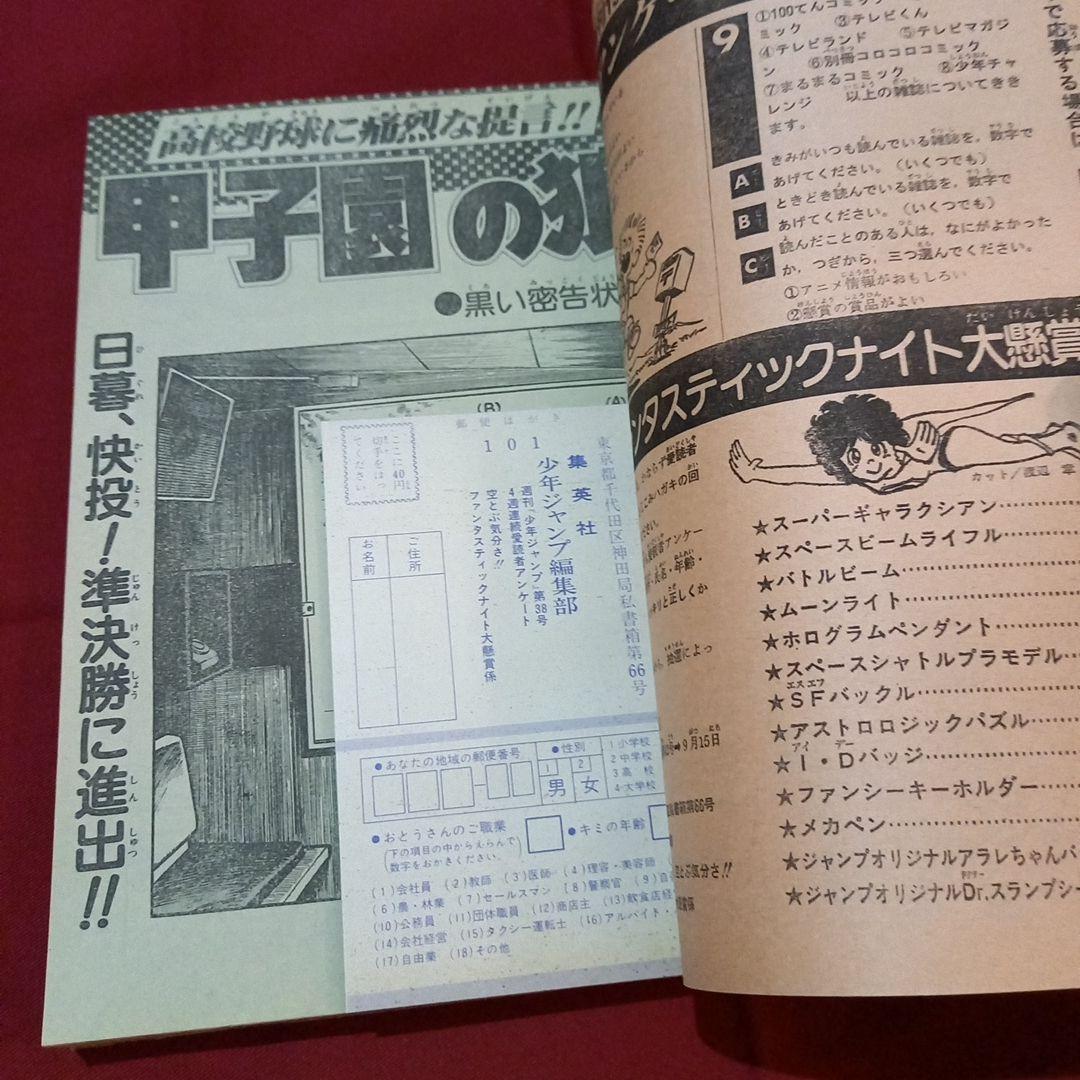 高校野球に痛烈な提言!!
甲子園の
●黒い密告状
日暮、快投!準決勝に進出!!
(B)
(A)
郵便はがき
101
ここに40円
切手をはっ
てください
東京都千代田区神田局私書箱第66号
集英社
少年ジャンプ編集部
週刊「少年ジャンプ」第38号
4週連続愛読者アンケート
空とぶ気分さ!!
ファンタスティックナイト大懸賞係
ご住所
お名前
●あなたの地域の郵便番号
●性別
1 男
2 女
1 小学校
2 中学校
3 高校
4 大学校
●おとうさんのご職業
(下の項目の中からえらんで
数字をおかきください。)
●キミの年齢
(1)会社員 (2)教師 (3)医師 (4)理容・美容師
(6)農・林業 (7)セールスマン (8)警察官 (9)
(10)公務員 (11)団体職員 (12)商店主 (13)飲食店経
(14)会社経営 (15)タクシー運転士 (16)アルバイト・
(17)自由業 (18)その他
9
①100てんコミック
ミック ③テレビくん
④テレビランド ⑤テレビマガジ
ン ⑥別冊コロコロコミック
⑦まるまるコミック ⑧少年チャ
レンジ 以上の雑誌についてきき
ます。
A
きみがいつも読んでいる雑誌を、数字で
あげてください。(いくつでも)
B
ときどき読んでいる雑誌を、数字で
あげてください。(いくつでも)
C
読んだことのある人は、なにがよかった
か、つぎから、三つ選んでください。
①アニメ情報がおもしろい
②懸賞の賞品がよい
で応募する場合は
ンタスティックナイト大懸賞
カット/渡辺
かならず愛読者
こみハガキの回
愛読者アンケー
氏名・年齢・
キリと正しくか
抽選によっ
➡9月15日
書箱第66号
とぶ気分さ!!
★スーパーギャラクシアン
★スペースビームライフル
★バトルビーム
★ムーンライト
★ホログラムペンダント
★スペースシャトルプラモデル
★SFバックル
★アストロロジックパズル
★I・Dバッジ
★ファンシーキーホルダー
★メカペン
★ジャンプオリジナルアラレちゃんバ
★ジャンプオリジナルDr.スランプシー